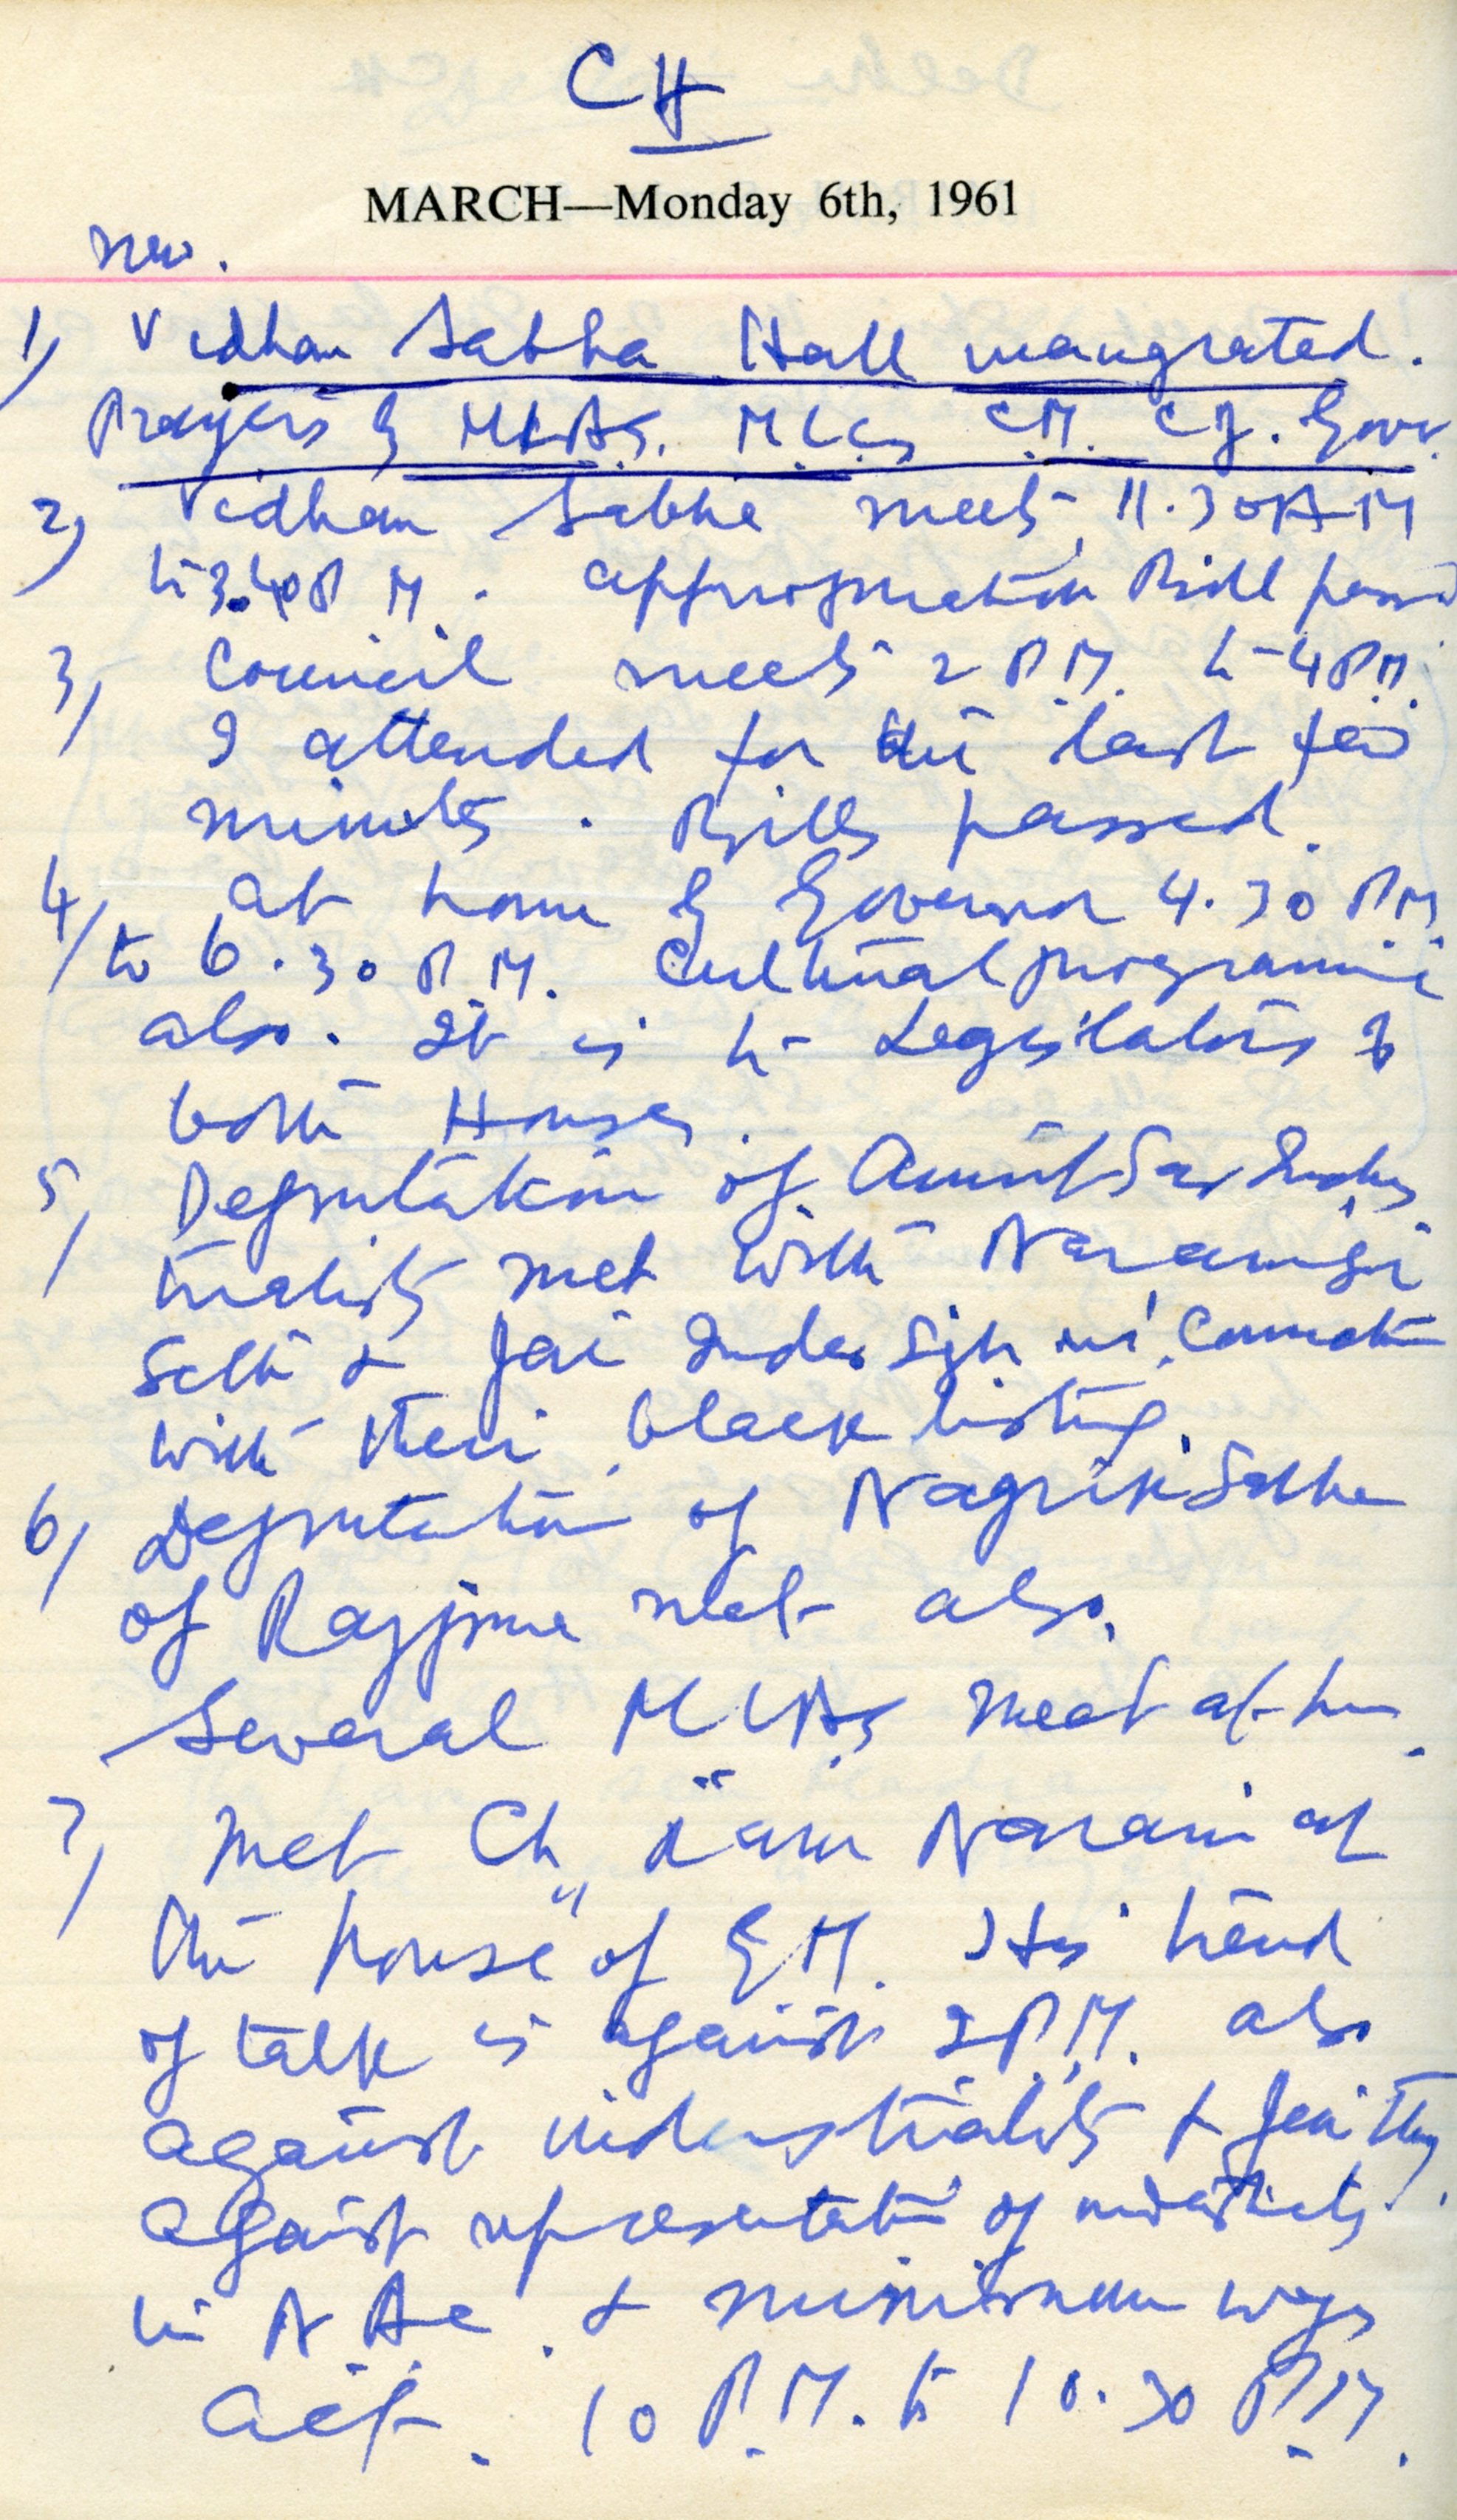 CH
MARCH—Monday 6th, 1961
New.
1) Vidhan Sabha Hall inaugrated.
Prayers by M.L.A.s. M.L.C.s C.M. C.J. Govr.
2) Vidhan Sabha meets 11.30 A.M
to 3.40 P.M. Appropriation Bill passed
3) Council meets 2 P.M. to 4 P.M.
I attended for the last few
minutes. Bills passed.
4) At home by Governor 4.30 P.M.
to 6.30 P.M. Cultural programme
also. It is to Legislators of
both Houses.
5) Deputation of Amritsar Indus
trialists met with
Seth & Jai Inder Singh in connection
with their black listing.
6) Deputation of Nagrik Sabha
of Rajpura met also.
Several M.L.As meet after
7) Met Ch. Ram Narain at
the house of G.M. His trend
of talk is against I.P.M. also
against industrialists &
against representation of industrialists
in & minimum wages
Act. 10 P.M. to 10.30 P.M.